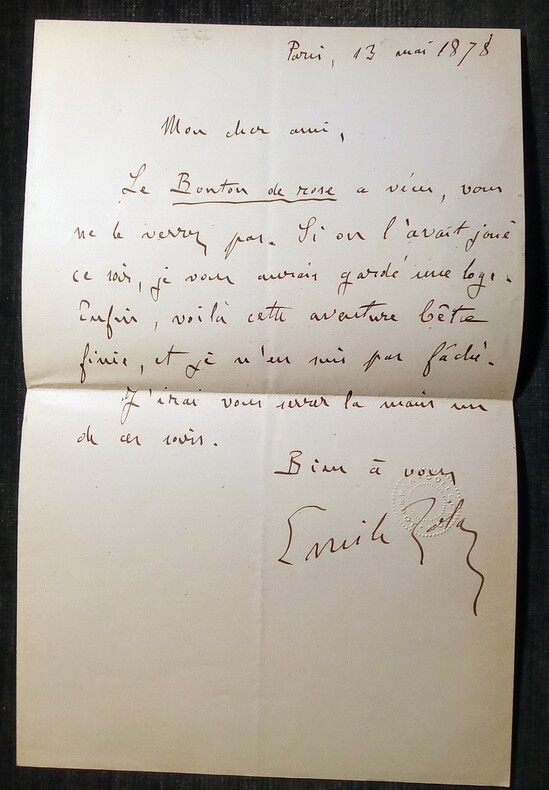 Paris, 13 mai 1878
Mon cher ami,
Le Bouton de rose a vécu, vous
ne le verrez pas. Si on l'avait joué
ce soir, je vous aurais gardé une loge.
Enfin, voilà cette aventure bête
finie, et je n'en suis pas fâché.
J'irai vous serrer la main un
de ces soirs.
Bien à vous
Emile Zola